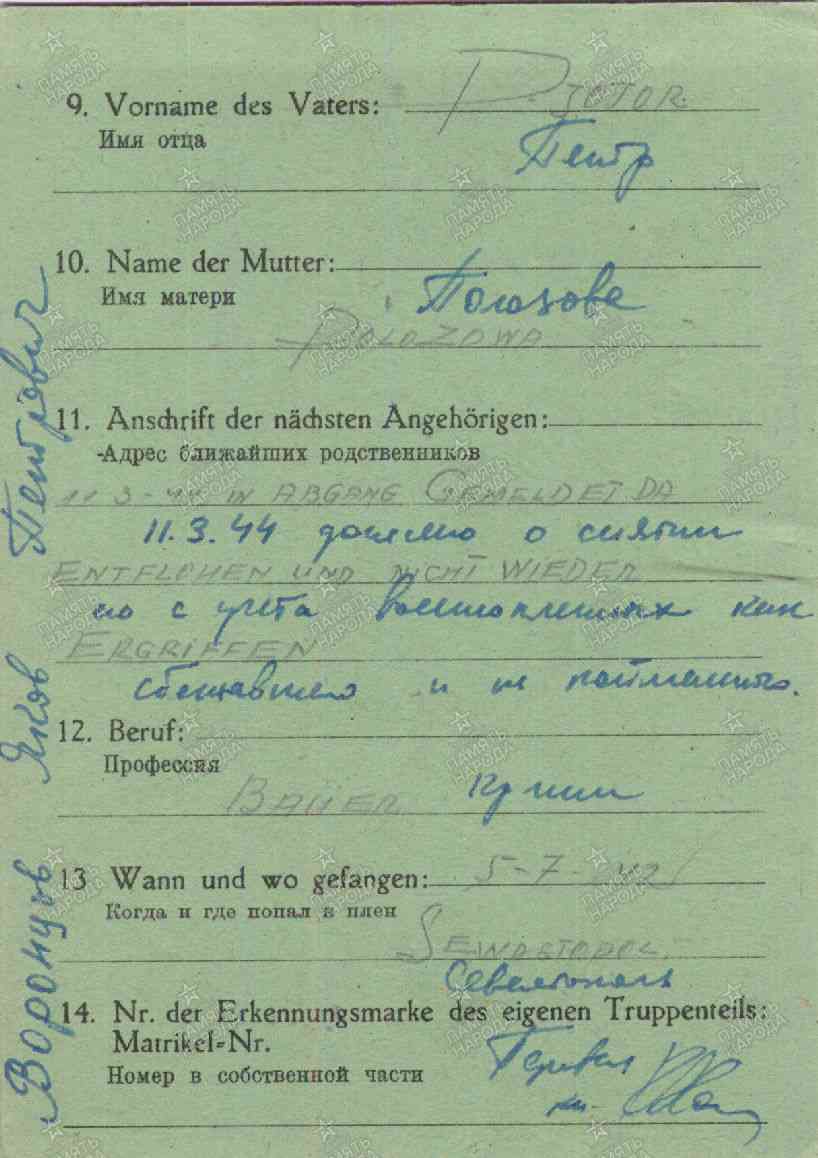 9. Vorname des Vaters: PJOTOR.
Имя отца
Петр
10. Name der Mutter:
Имя матери
Полозова
POLOZOWA
11. Anschrift der nächsten Angehörigen:
-Адрес ближайших родственников
11 3-44 IN ABGANG GEMELDET DA
11.3.44 о снятии
ENTFLOHEN UND NICHT WIEDER
с учета военнопленных как
ERGRIFFEN
сбежавшего и не пойманного.
12. Beruf:
Профессия
BAUER
13 Wann und wo gefangen: 5-7-42
Когда и где попал в плен
Севастополь
14. Nr. der Erkennungsmarke des eigenen Truppenteils:
Matrikel=Nr.
Номер в собственной части
Воронцов Яков Петрович
ПАМЯТЬ
НАРОДА